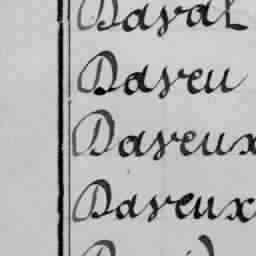 Daval
Daveu
Daveux
Daveux